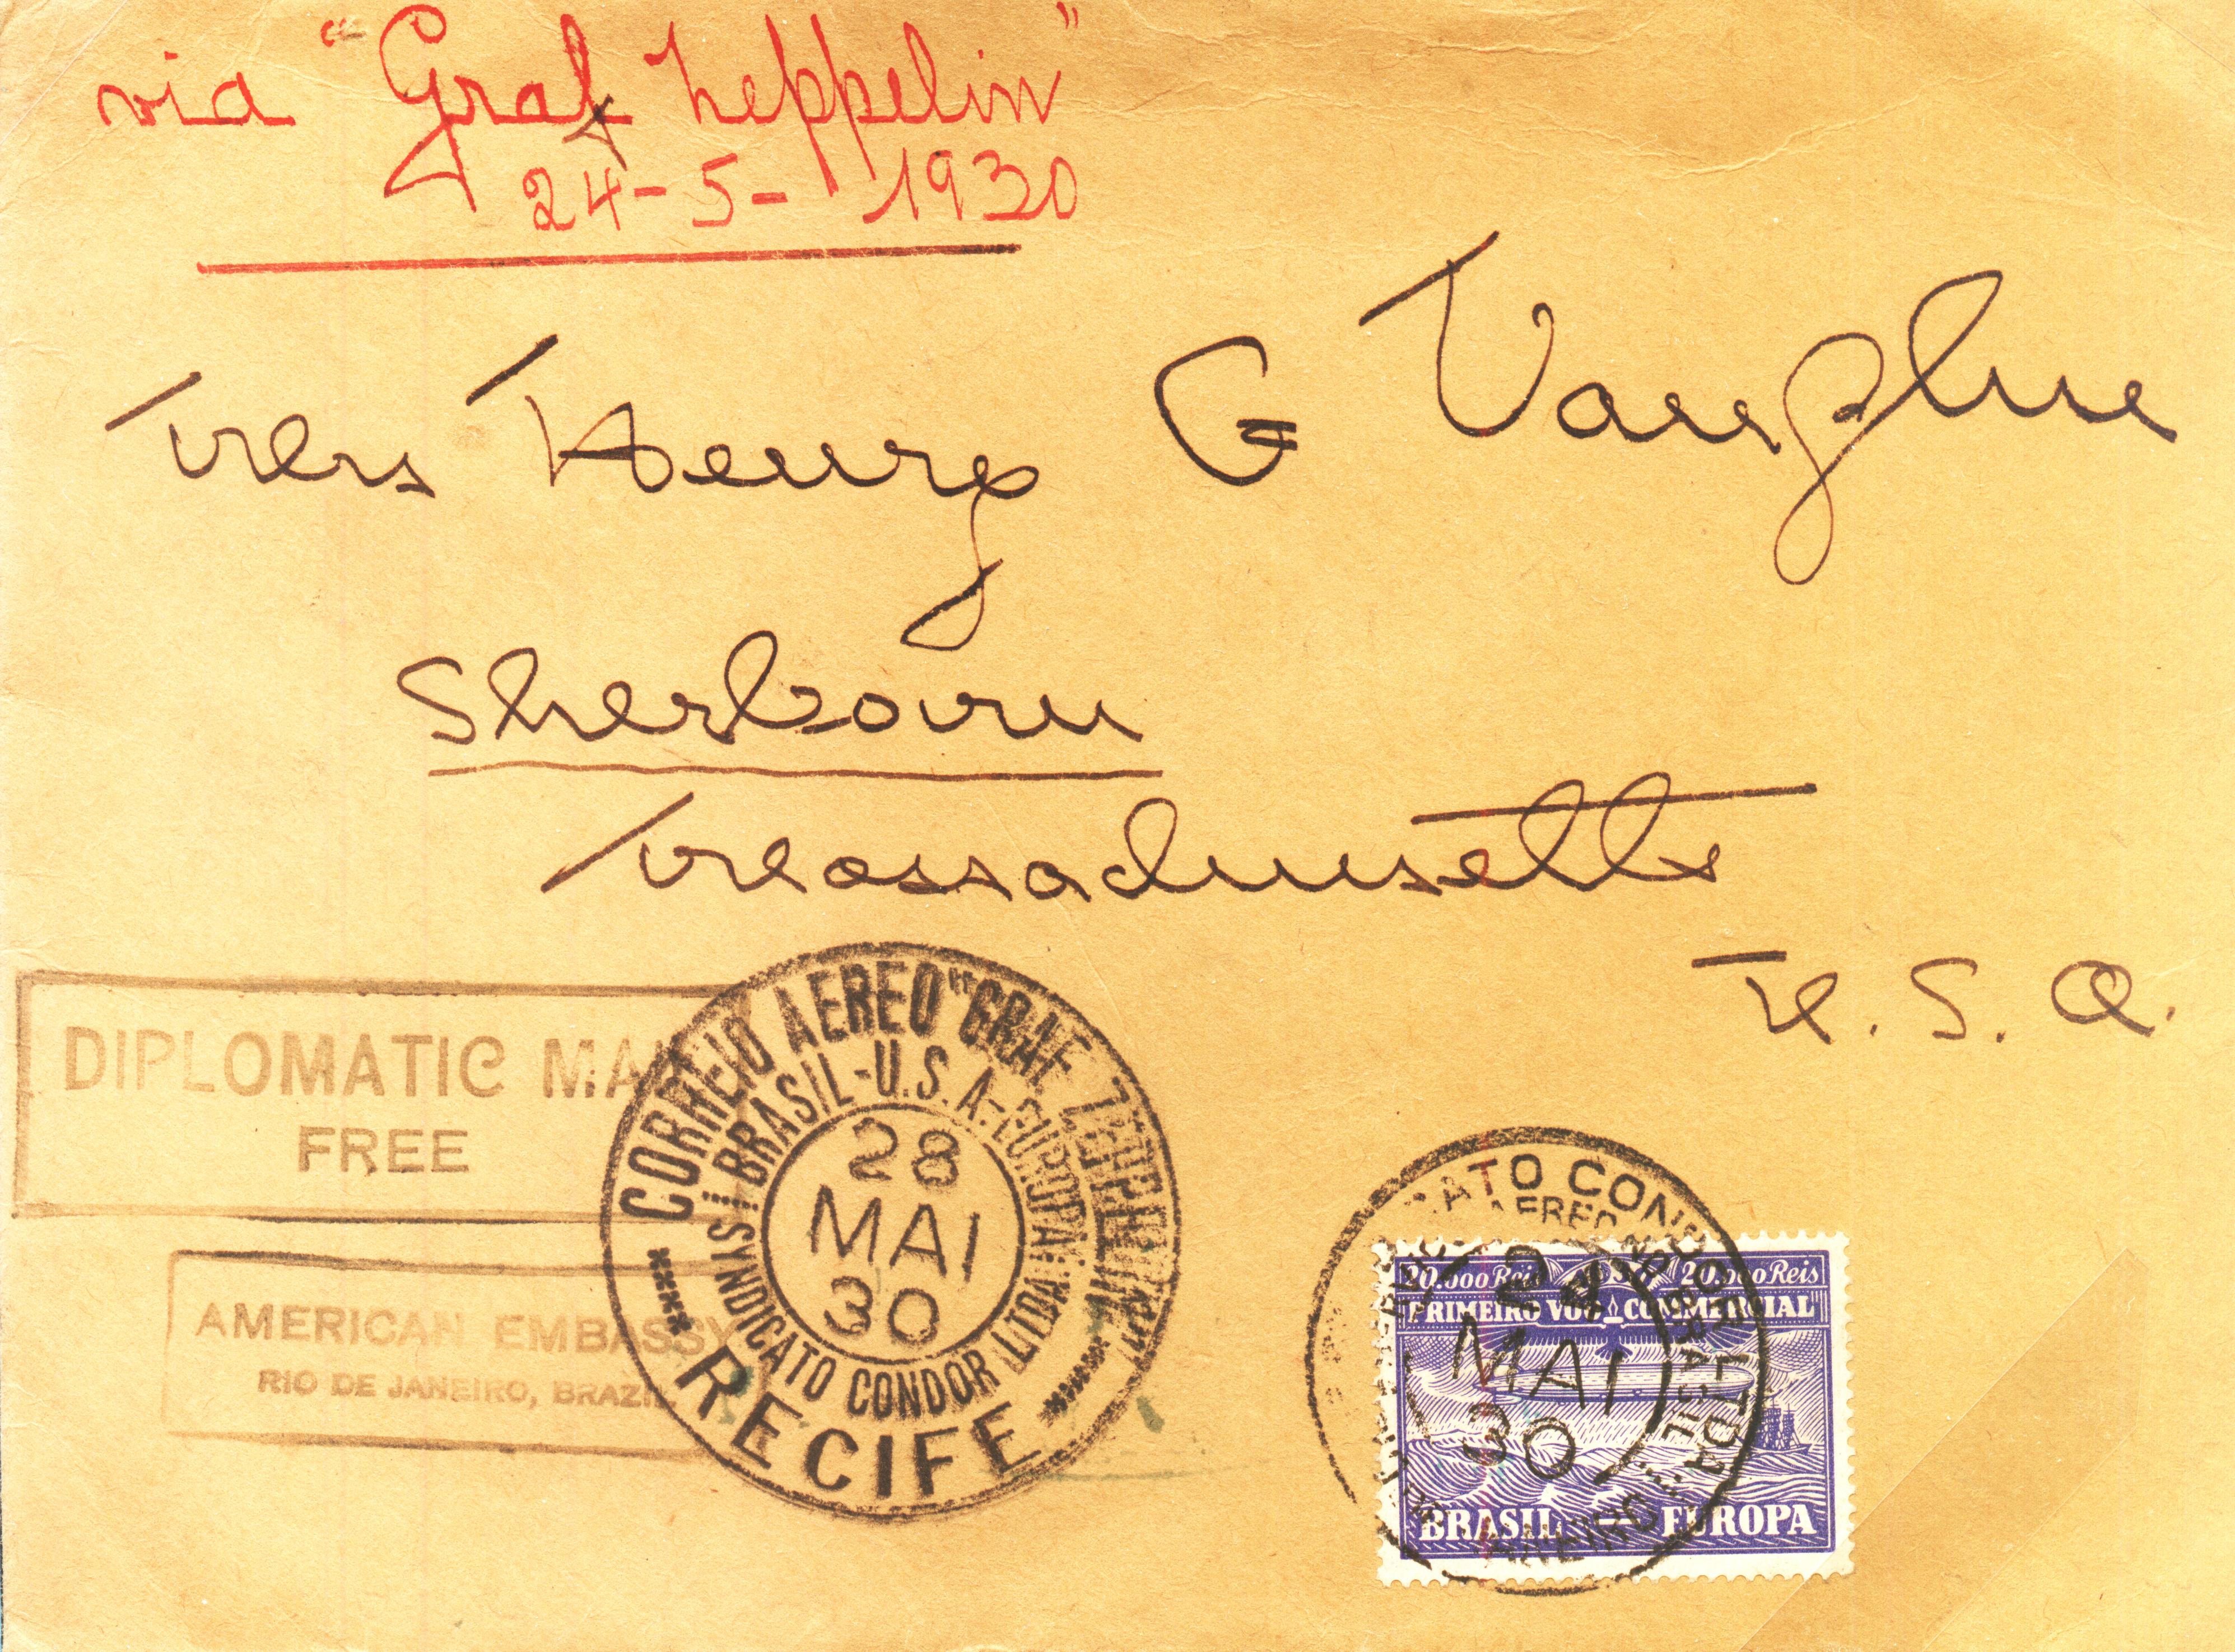 via "Graf Zeppelin"
24-5-1930
Mrs Henry G Vaughn
Sherborn
Massachusetts
U.S.A.
DIPLOMATIC MA
FREE
AMERICAN EMBASSY
RIO DE JANEIRO, BRAZIL
CORREIO AEREO "GRAF ZEPPELIN"
BRASIL-U.S.A.-EUROPA
28
MAI
30
SYNDICATO CONDOR LTDA
RECIFE
CATO CONDOR LTDA
AEREO
24
MAI
30
20.000 Reis 20.000 Reis
PRIMEIRO VOO COMMERCIAL
BRASIL — EUROPA